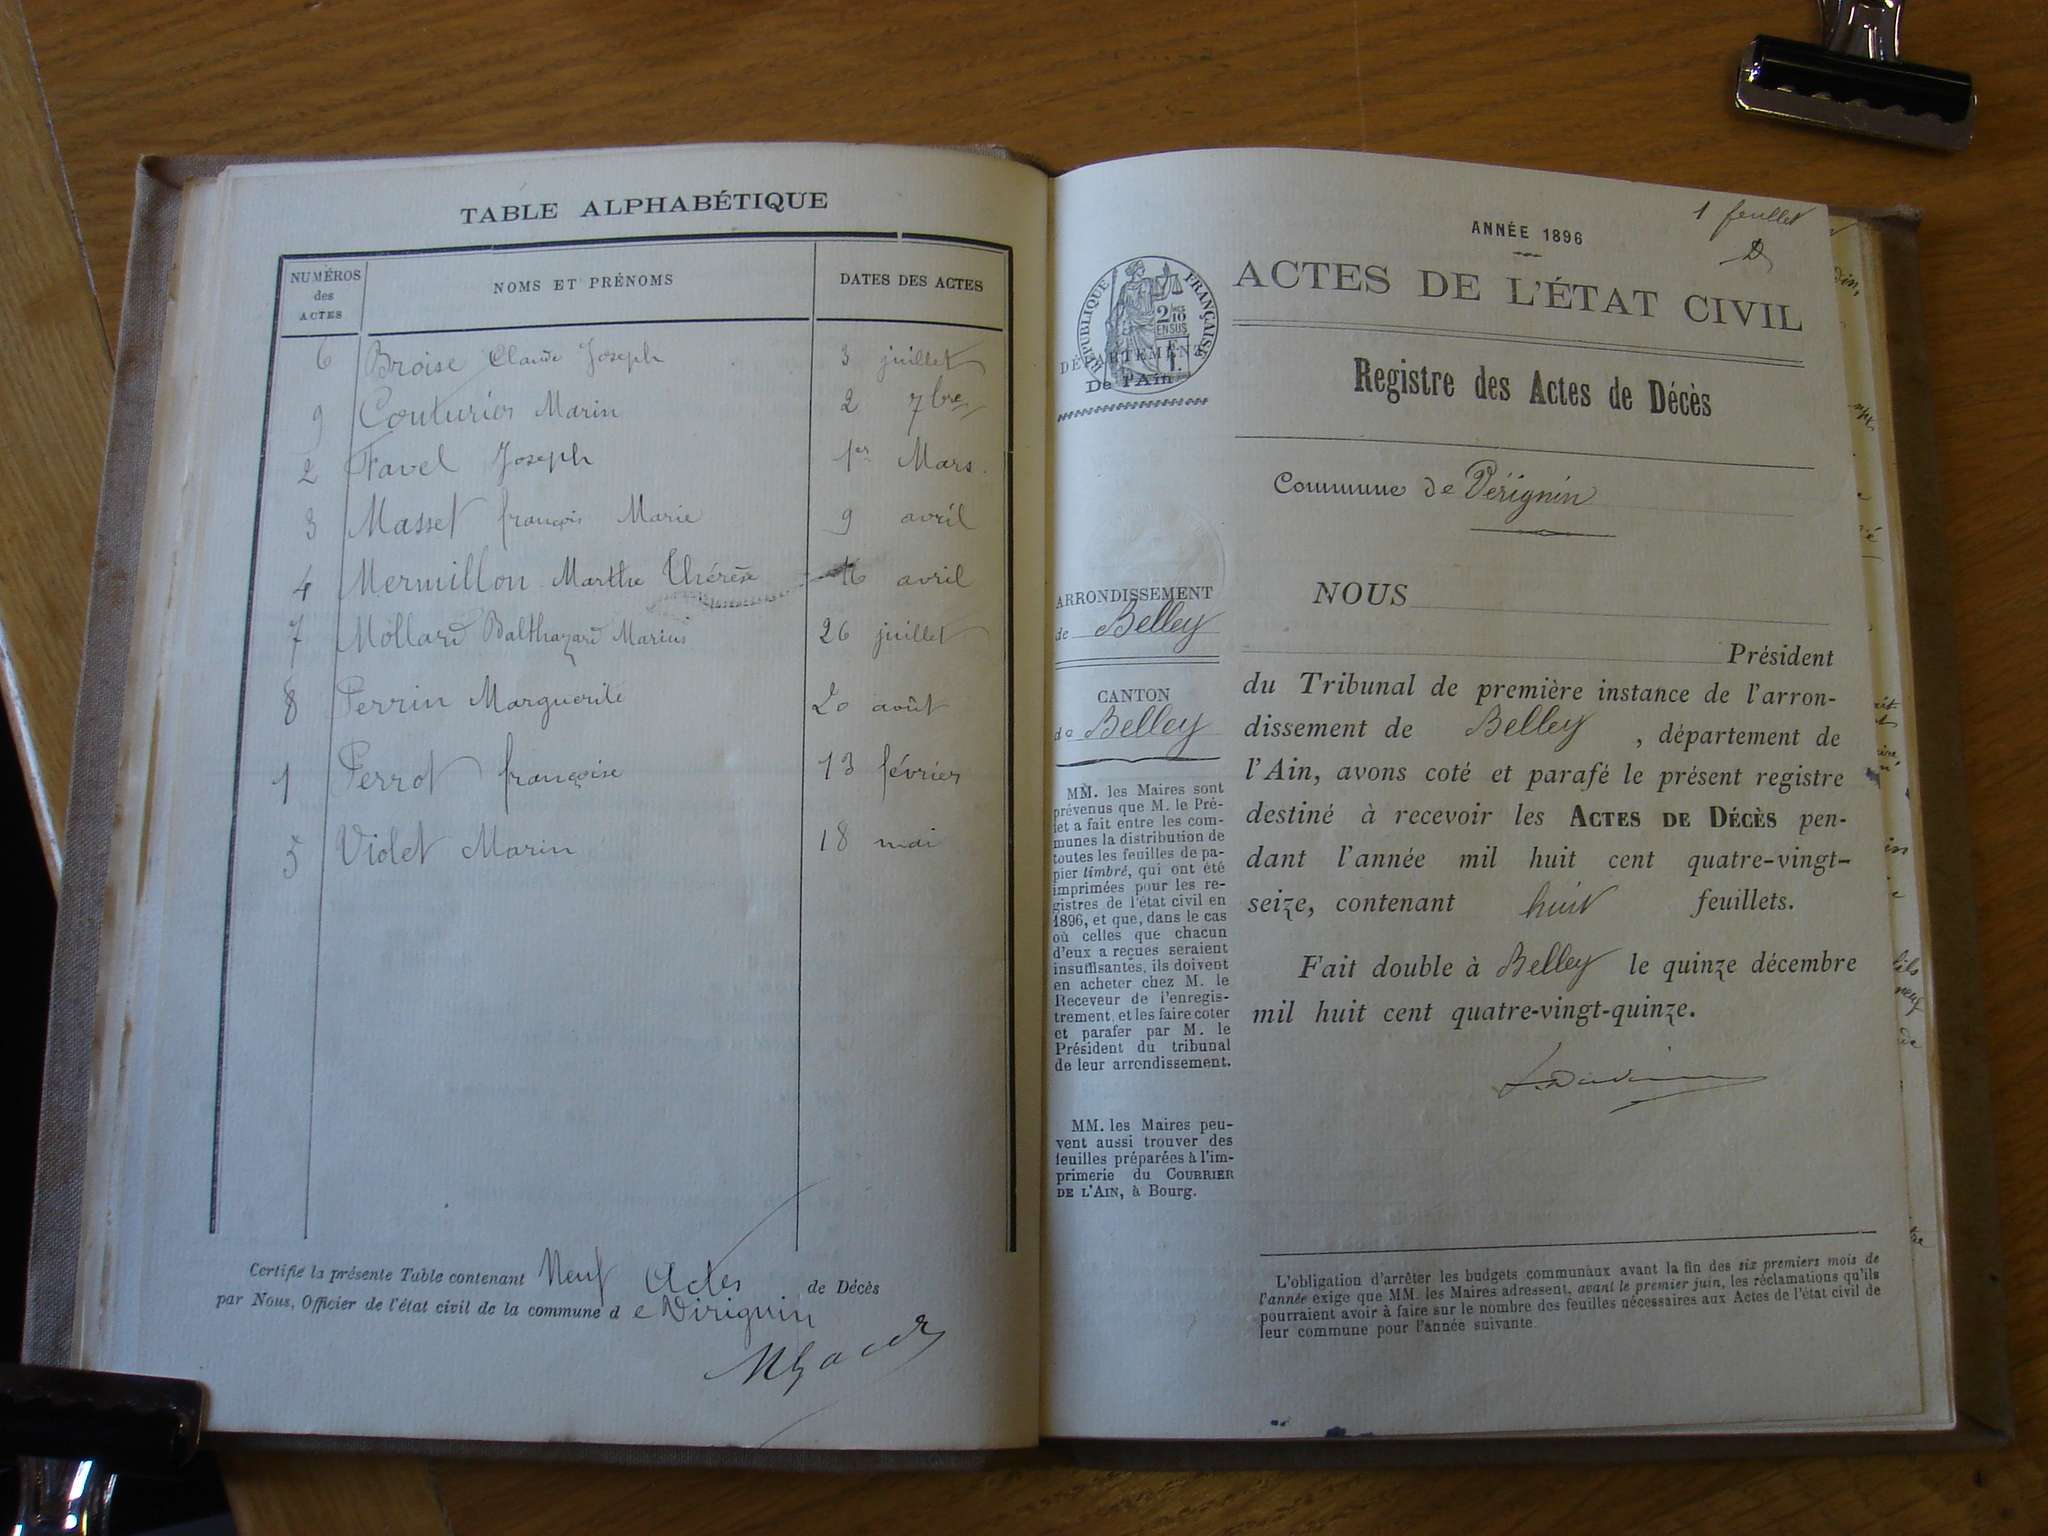 TABLE ALPHABÉTIQUE
NUMÉROS des ACTES NOMS ET PRÉNOMS DATES DES ACTES
6 Broise Claude Joseph 3 juillet
9 Couturier Marin 2 7bre
2 Favel Joseph 1er Mars.
3 Masset françois Marie 9 avril
4 Mermillon Marthe Thérèse 16 avril
7 Mollard Balthazard Marius 26 juillet
8 Perrin Marguerite 20 août
1 Perrot françoise 13 février
5 Violet Marin 18 mai
Certifié la présente Table contenant Neuf Actes de Décès
par Nous, Officier de l'état civil de la commune d e Virignin
1 feuillet
ANNÉE 1896
ACTES DE L'ÉTAT CIVIL
RÉPUBLIQUE FRANÇAISE
2/10 EN SUS
DÉPARTEMENT
De l'Ain
Registre des Actes de Décès
Commune de Vérignin
ARRONDISSEMENT
de Belley
CANTON
de Belley
MM. les Maires sont
prévenus que M. le Pré-
fet a fait entre les com-
munes la distribution de
toutes les feuilles de pa-
pier timbré, qui ont été
imprimées pour les re-
gistres de l'état civil en
1896, et que, dans le cas
où celles que chacun
d'eux a reçues seraient
insuffisantes, ils doivent
en acheter chez M. le
Receveur de l'enregis-
trement, et les faire coter
et parafer par M. le
Président du tribunal
de leur arrondissement.
MM. les Maires peu-
vent aussi trouver des
feuilles préparées à l'im-
primerie du COURRIER
DE L'AIN, à Bourg.
NOUS
Président
du Tribunal de première instance de l'arron-
dissement de Belley, département de
l'Ain, avons coté et parafé le présent registre
destiné à recevoir les ACTES DE DÉCÈS pen-
dant l'année mil huit cent quatre-vingt-
seize, contenant huit feuillets.
Fait double à Belley le quinze décembre
mil huit cent quatre-vingt-quinze.
L'obligation d'arrêter les budgets communaux avant la fin des six premiers mois de
l'année exige que MM. les Maires adressent, avant le premier juin, les réclamations qu'ils
pourraient avoir à faire sur le nombre des feuilles nécessaires aux Actes de l'état civil de
leur commune pour l'année suivante.